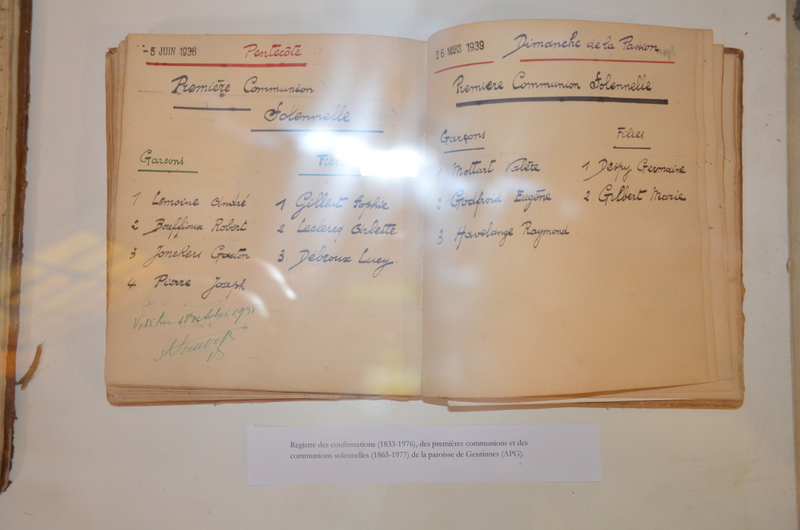 - 5 JUIN 1938 Pentecôte
Première Communion
Solennelle
Garçons
1 Lemoine André
2 Bouffioux Robert
3 Jonckers Gaston
4 Pierre Joseph
Filles
1 Gilbert Sophie
2 Leclercq Arlette
3 Debroux Lucy.
26 MARS 1939 Dimanche de la Passion
Première Communion Solennelle
Garçons
1 Mottart Valère
2 Godfroid Eugène
3 Havelange Raymond
Filles
1 Despy Germaine
2 Gilbert Marie
Registre des confirmations (1833-1976), des premières communions et des
communions solennelles (1865-1977) de la paroisse de Gentinnes (APG).